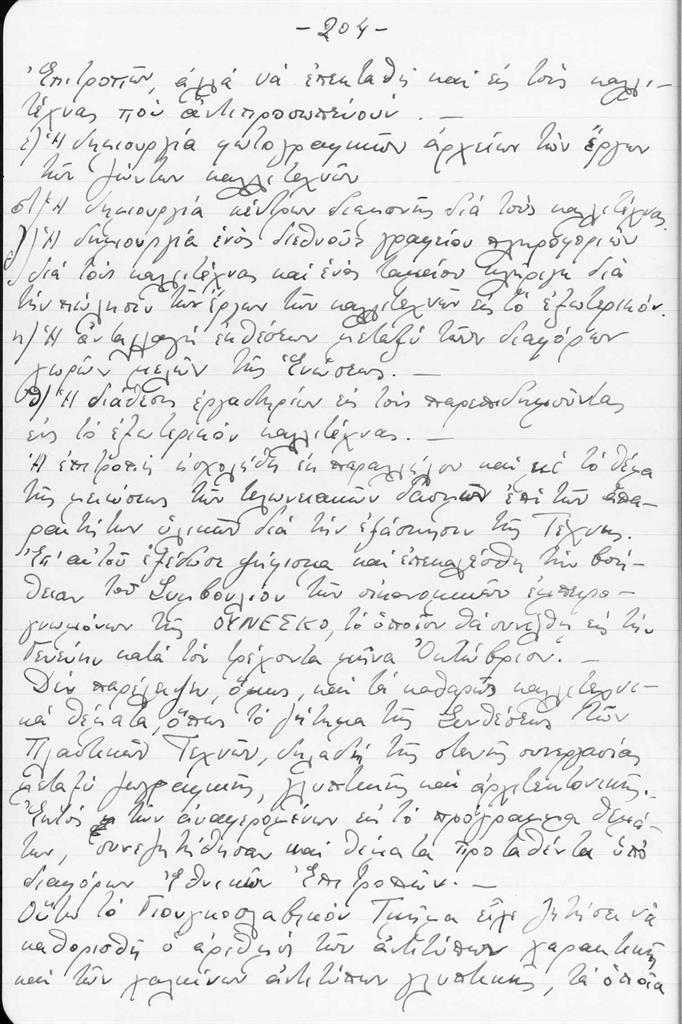 -204-
Ἐπιτροπῶν, ἀλλά νά ἐπεκταθῇ καί εἰς τούς καλλι-
τέχνας πού ἀντιπροσωπεύουν. —
ε) Ἡ δημιουργία φωτογραφικῶν ἀρχείων τῶν ἔργων
τῶν ζώντων καλλιτεχνῶν
στ) Ἡ δημιουργία κέντρων διαμονῆς διά τούς καλλιτέχνας.
ζ) Ἡ δημιουργία ἑνός διεθνοῦς γραφείου πληροφοριῶν
διά τούς καλλιτέχνας καί ἑνός ταμείου διά
τήν πώλησιν τῶν ἔργων τῶν καλλιτεχνῶν εἰς τό ἐξωτερικόν.
η) Ἡ ἀνταλλαγή ἐκθέσεων μεταξύ τῶν διαφόρων
χωρῶν μελῶν τῆς Ἑνώσεως. —
θ) Ἡ διάθεσις ἐργαστηρίων εἰς τούς παρεπιδημοῦντας
εἰς τό ἐξωτερικόν καλλιτέχνας. —
Ἡ ἐπιτροπή ἠσχολήθη ἐκ παραλλήλου καί μέ τό θέμα
τῆς μειώσεως τῶν τελωνειακῶν δασμῶν ἐπί τῶν ἀπα-
ραιτήτων ὑλικῶν διά τήν ἐξάσκησιν τῆς Τέχνης.
Ἐπ' αὐτοῦ ἐξέδωσε ψήφισμα καί ἐπεκαλέσθη τήν βοή-
θειαν τοῦ Συμβουλίου τῶν οἰκονομικῶν ἐμπειρο-
γνωμόνων τῆς ΟΥΝΕΣΚΟ, τό ὁποῖον θά συνέλθῃ εἰς τήν
Γενεύην κατά τόν τρέχοντα μῆνα Ὀκτώβριον. —
Δέν παρέλειψεν, ὅμως, καί τά καθαρῶς καλλιτεχνι-
κά θέματα, ὅπως τό ζήτημα τῆς Συνθέσεως τῶν
Πλαστικῶν Τεχνῶν, δηλαδή τῆς στενῆς συνεργασίας
μεταξύ ζωγραφικῆς, γλυπτικῆς καί ἀρχιτεκτονικῆς.
Ἐκτός τῶν ἀναφερομένων εἰς τό πρόγραμμα θεμά-
των, συνεζητήθησαν καί θέματα προταθέντα ὑπό
διαφόρων Ἐθνικῶν Ἐπιτροπῶν. —
Οὕτω τό Γιουγκοσλαβικόν Τμῆμα εἶχε ζητήσει νά
καθορισθῇ ὁ ἀριθμός τῶν ἀντιτύπων χαρακτικῆς
καί τῶν χαλκίνων ἀντιτύπων γλυπτικῆς, τά ὁποῖα